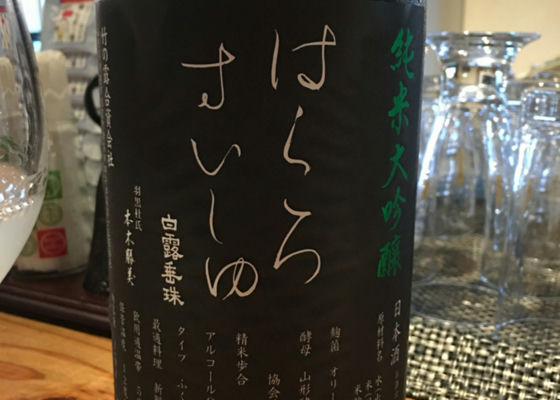 純米大吟醸
日本酒
原材料名
はくろ
すいしゅ
麹菌 オリー
酵母 山形
協会
精米歩合
アルコール
タイプ ふく
最適料理
飲用適温帯
白露垂珠
羽黒杜氏
本木勝美
竹の露合資会社